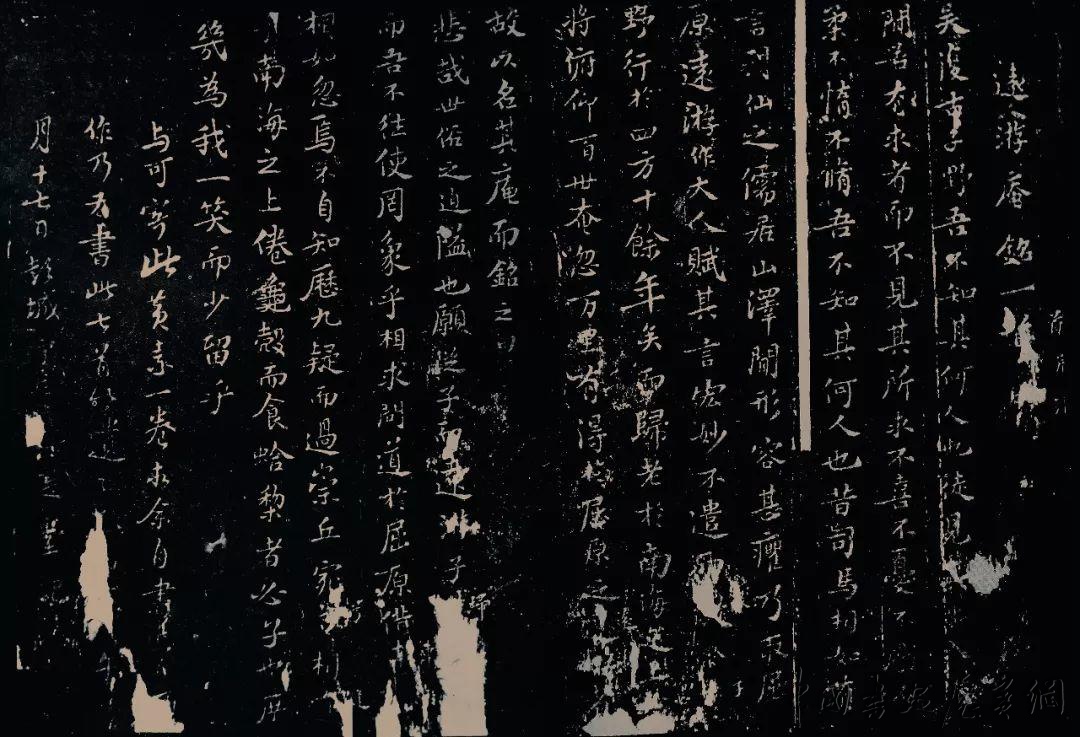 遠游庵銘一首
吳復古子野吾不知其何人也徒見
聞吾有求者而不見其所求不喜不憂不
不惰不脩吾不知其何人也昔司馬相如
言列仙之儒居山澤間形容甚癯乃
原遠游作大人賦其言宏妙不遣
野行於四方十餘年矣而歸老於南海之上
將俯仰百世奄忽万里有得於屈原之
故以名其庵而銘之曰
悲哉世俗之迫隘也願從子而遠游子歸
而吾不往使罔象乎相求問道於屈原借
相如忽焉不自知歷九疑而過崇丘宛
南海之上倦龜殼而食蛤棃者必子也庶
幾為我一笑而少留乎
与可寄此黃素一卷求余自書
作乃为書此七首
月十七日彭城